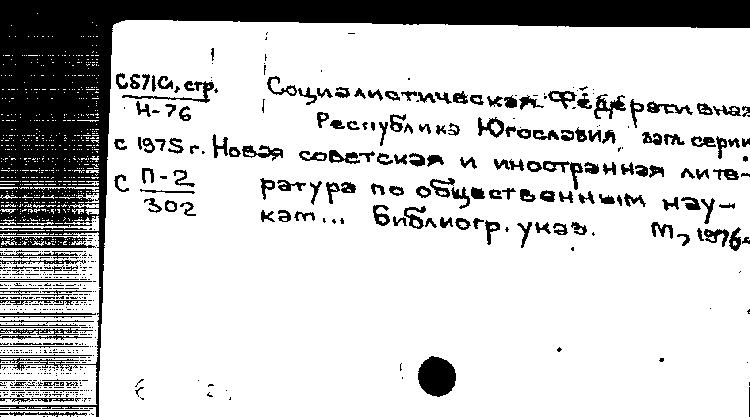 С571С, стр. Социалистическая Федеративная
Н-76 Республика Югославия, загл. серии
с 1975 г. Новая советская и иностранная лите-
С П-2 ратура по общественным нау-
302 кам... Библиогр. указ. М, 1976-